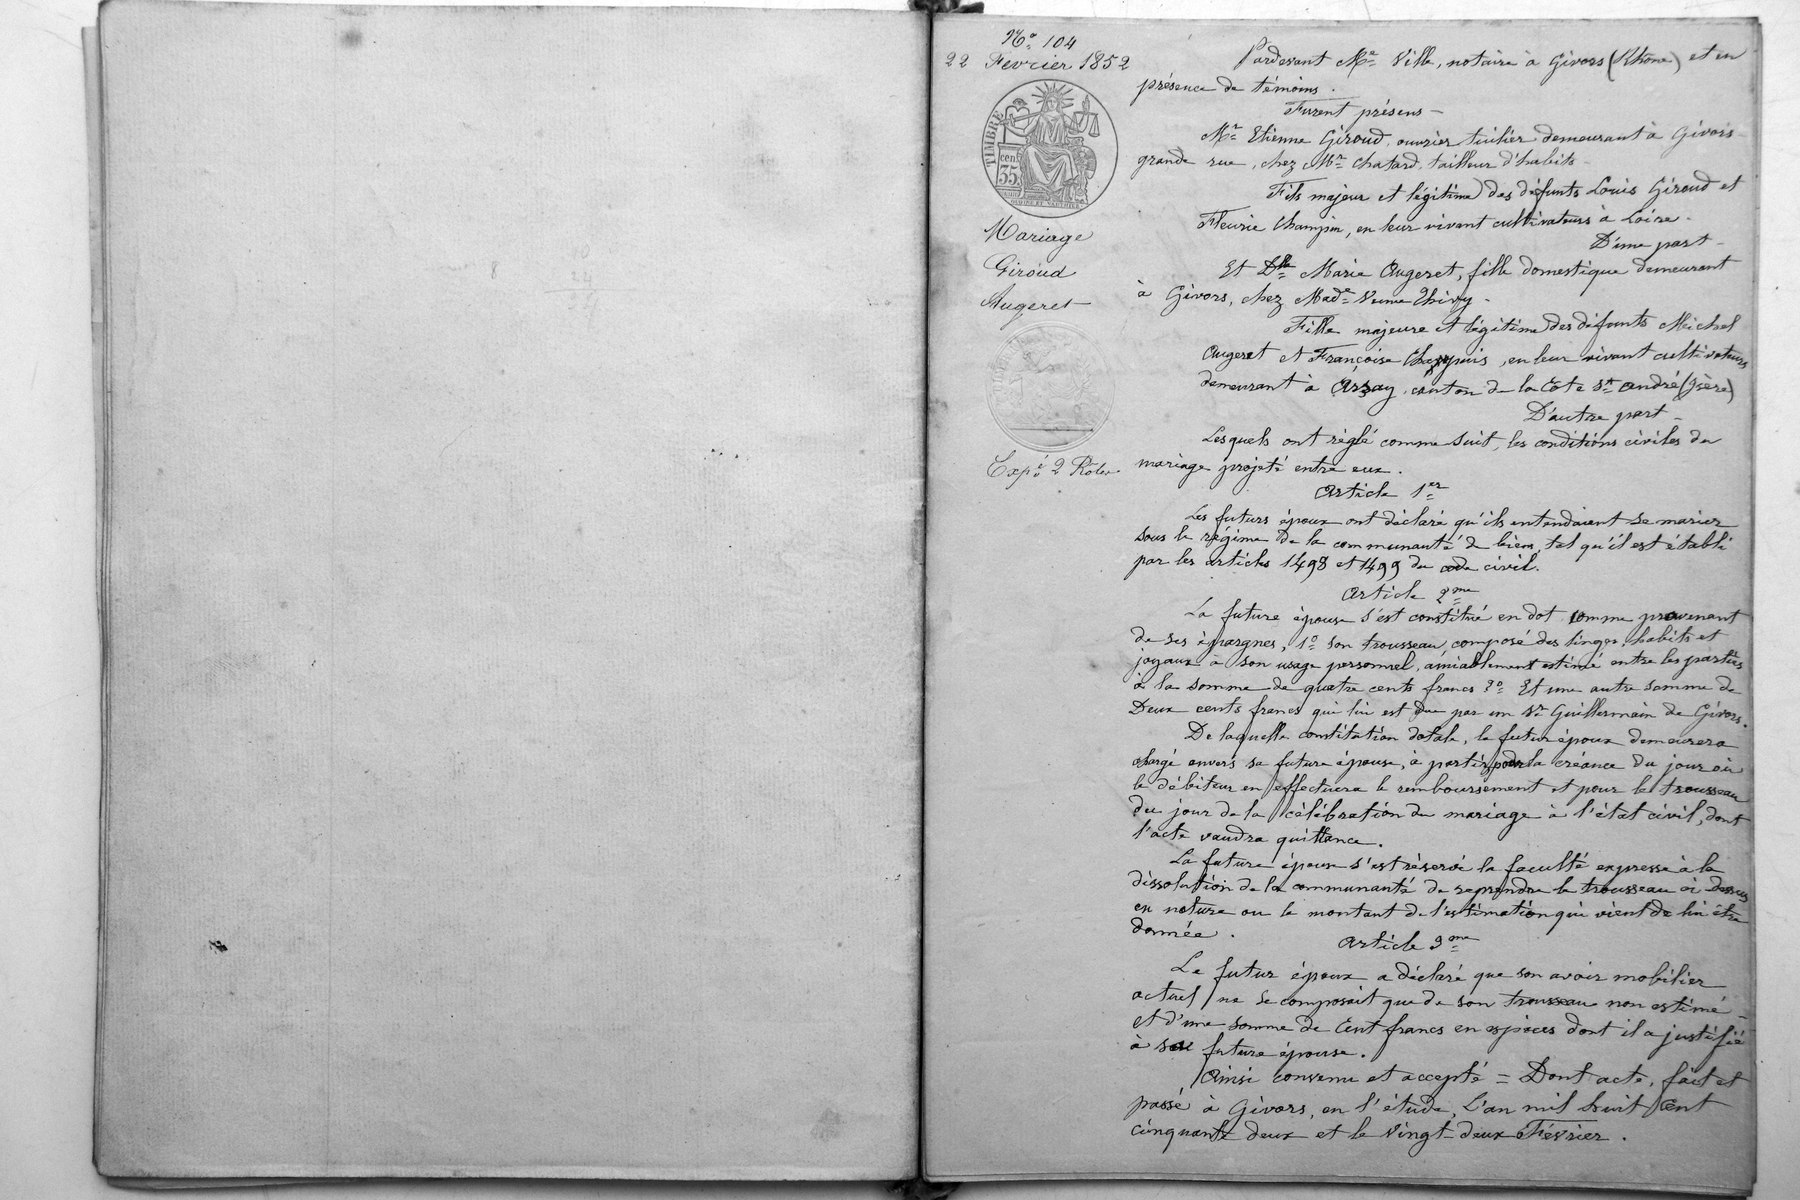 N° 104
22 Fevrier 1852
TIMBRE
cen
35
Mariage
Giroud
Augeret
Expé 2 Rôles
Pardevant Me Ville, notaire à Givors (Rhône) et en
présence de témoins.
Furent présens
Mr Etienne Giroud, ouvrier tuilier demeurant à Givors
grande rue, chez Mr Chatard, tailleur d'habits
Fils majeur et légitime des défunts Louis Giroud et
Fleurie Champin, en leur vivant cultivateurs à Loire.
D'une part
Et Dlle Marie Augeret, fille domestique demeurant
à Givors, chez Made Veuve Thivy.
Fille majeure et légitime des défunts Michel
Augeret et Françoise, en leur vivant cultivateurs
demeurant à Arzay, canton de la Cote St André (Isère)
D'autre part
Lesquels ont réglé comme suit, les conditions civiles du
mariage projeté entre eux.
Article 1er
Les futurs époux ont déclaré qu'ils entendaient se marier
sous le régime de la communauté de biens, tel qu'il est établi
par les articles 1498 et 1499 du code civil.
Article 2me
La future épouse s'est constitué en dot comme provenant
de ses épargnes, 1° son trousseau, composé des linges, habits et
joyaux à son usage personnel, amiablement estimé entre les parties
à la somme de quatre cents francs 2° Et une autre somme de
Deux cents francs qui lui est due par un Sr Guillermain de Givors.
De laquelle constitution dotale, le futur époux demeurera
chargé envers sa future épouse, à partir pour la créance du jour où
le débiteur en effectuera le remboursement et pour le trousseau
du jour de la célébration du mariage à l'état civil, dont
l'acte vaudra quittance.
La future épouse s'est réservé la faculté expresse à la
dissolution de la communauté de reprendre le trousseau ci dessus
en nature ou le montant de l'estimation qui vient de lui être
donnée.
Article 3me
Le futur époux a déclaré que son avoir mobilier
actuel ne se composait que de son trousseau non estimé
et d'une somme de Cent francs en espèces dont il a justifié
à sa future épouse.
Ainsi convenu et accepté = Dont acte, fait et
passé à Givors, en l'étude, L'an mil huit cent
cinquante deux et le vingt-deux Février.